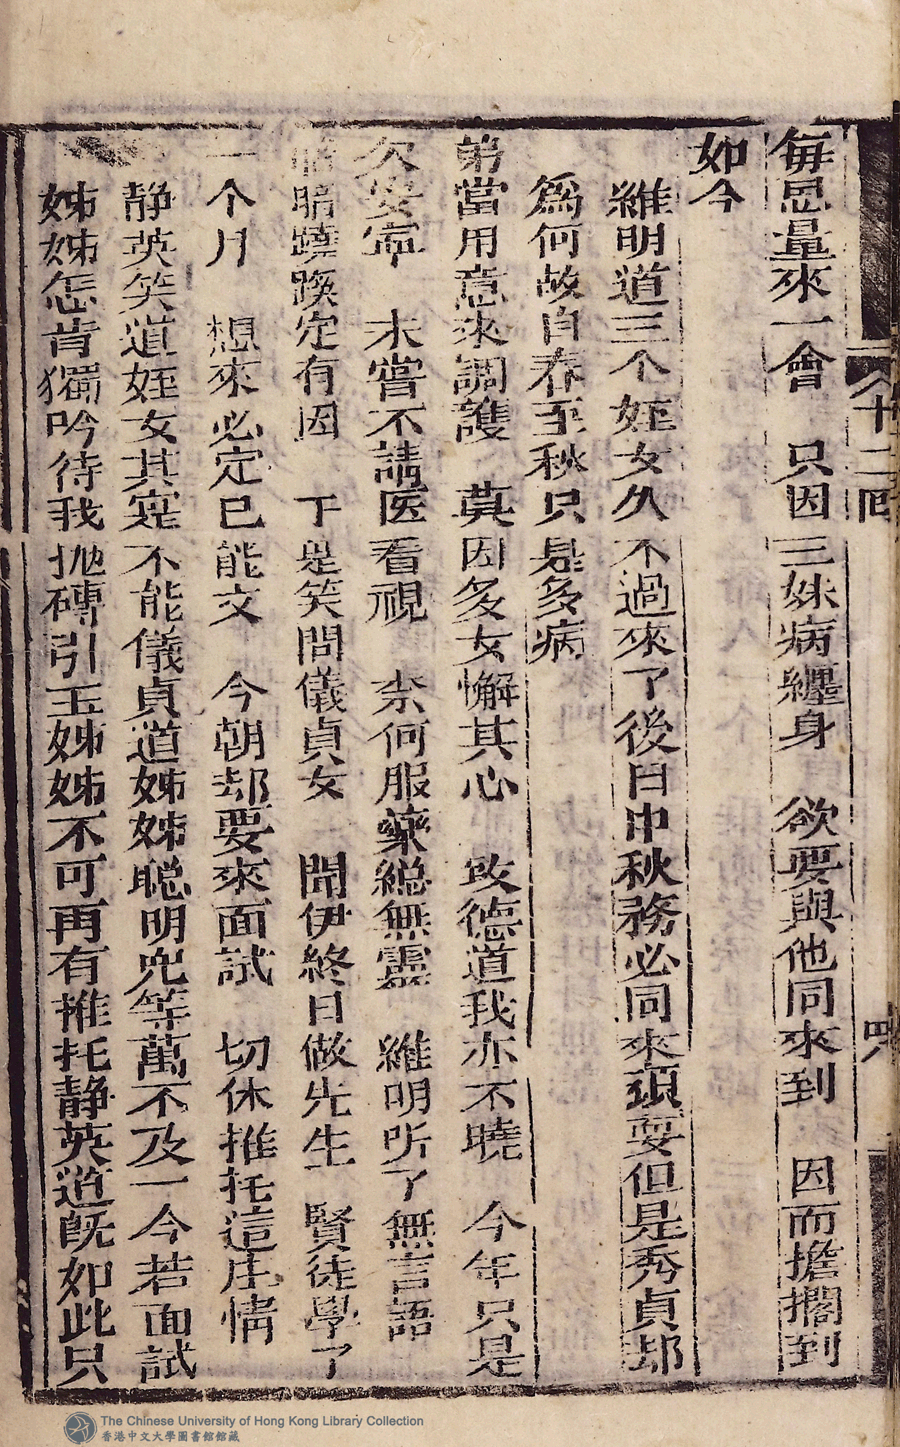 每思量來一會　只因三妹病纏身　欲要與他同來到　因而擔擱到
如今
維明道三个姪女久不過來了後日中秋務必同來頑耍但是秀貞却
為何故自春至秋只是多病
弟當用意來調護　莫因多女懈其心　致德道我亦不曉　今年只是
欠安寧　未嘗不請医看視　柰何服藥緫無靈　維明听了無言語
暗暗蹺蹊定有因　于是笑問儀貞女　聞伊終日做先生　賢徒學了
一个月　想來必定已能文　今朝却要來面試　切休推托這庄情
静英笑道姪女其寔不能儀貞道姊姊聪明兜等萬不及一今若面試
姊姊怎肯獨吟待我抛磚引玉姊姊不可再有推托静英道旣如此只
八十二囘
The Chinese University of Hong Kong Library Collection
香港中文大學圖書館館藏